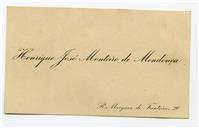 Henrique José Monteiro de Mendonça
R. Marquez de Fronteira, 20